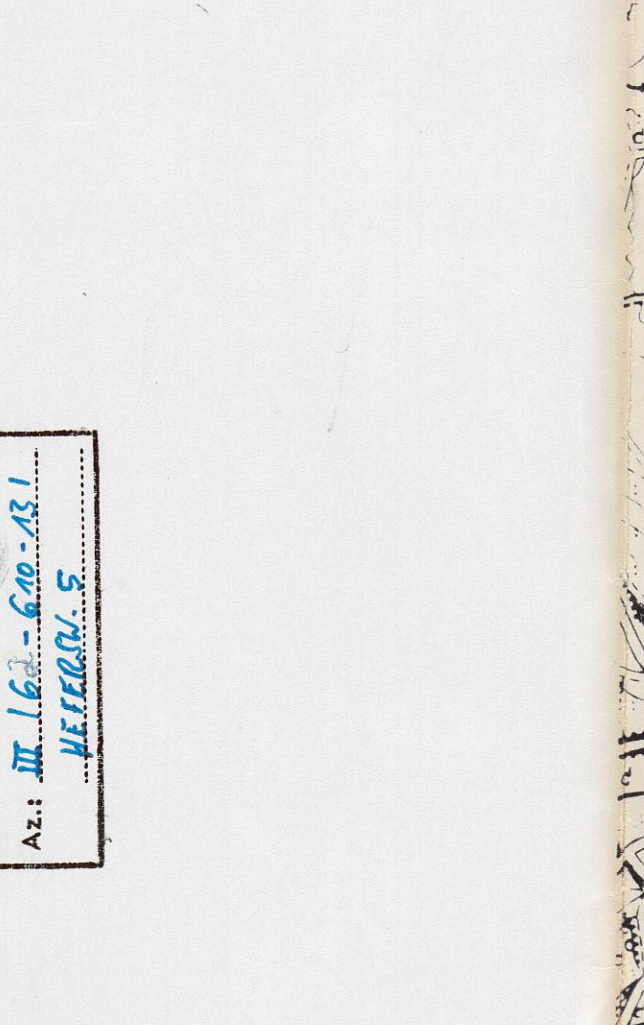 Az.: III / 62 - 610 - 13 /
HEFERSW. 5